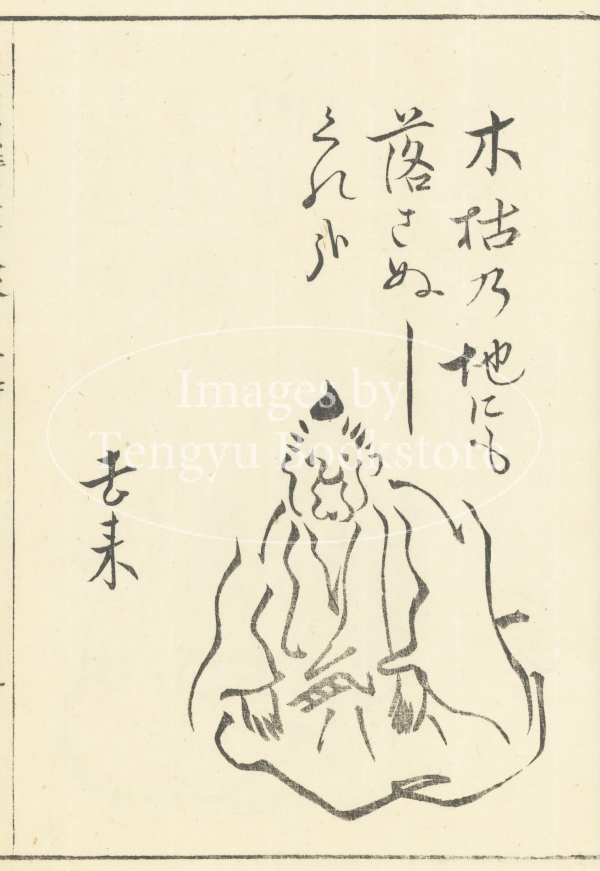 木枯乃地にも
落さぬ
しくれ哉
去来
Images by
Tengyu Bookstore